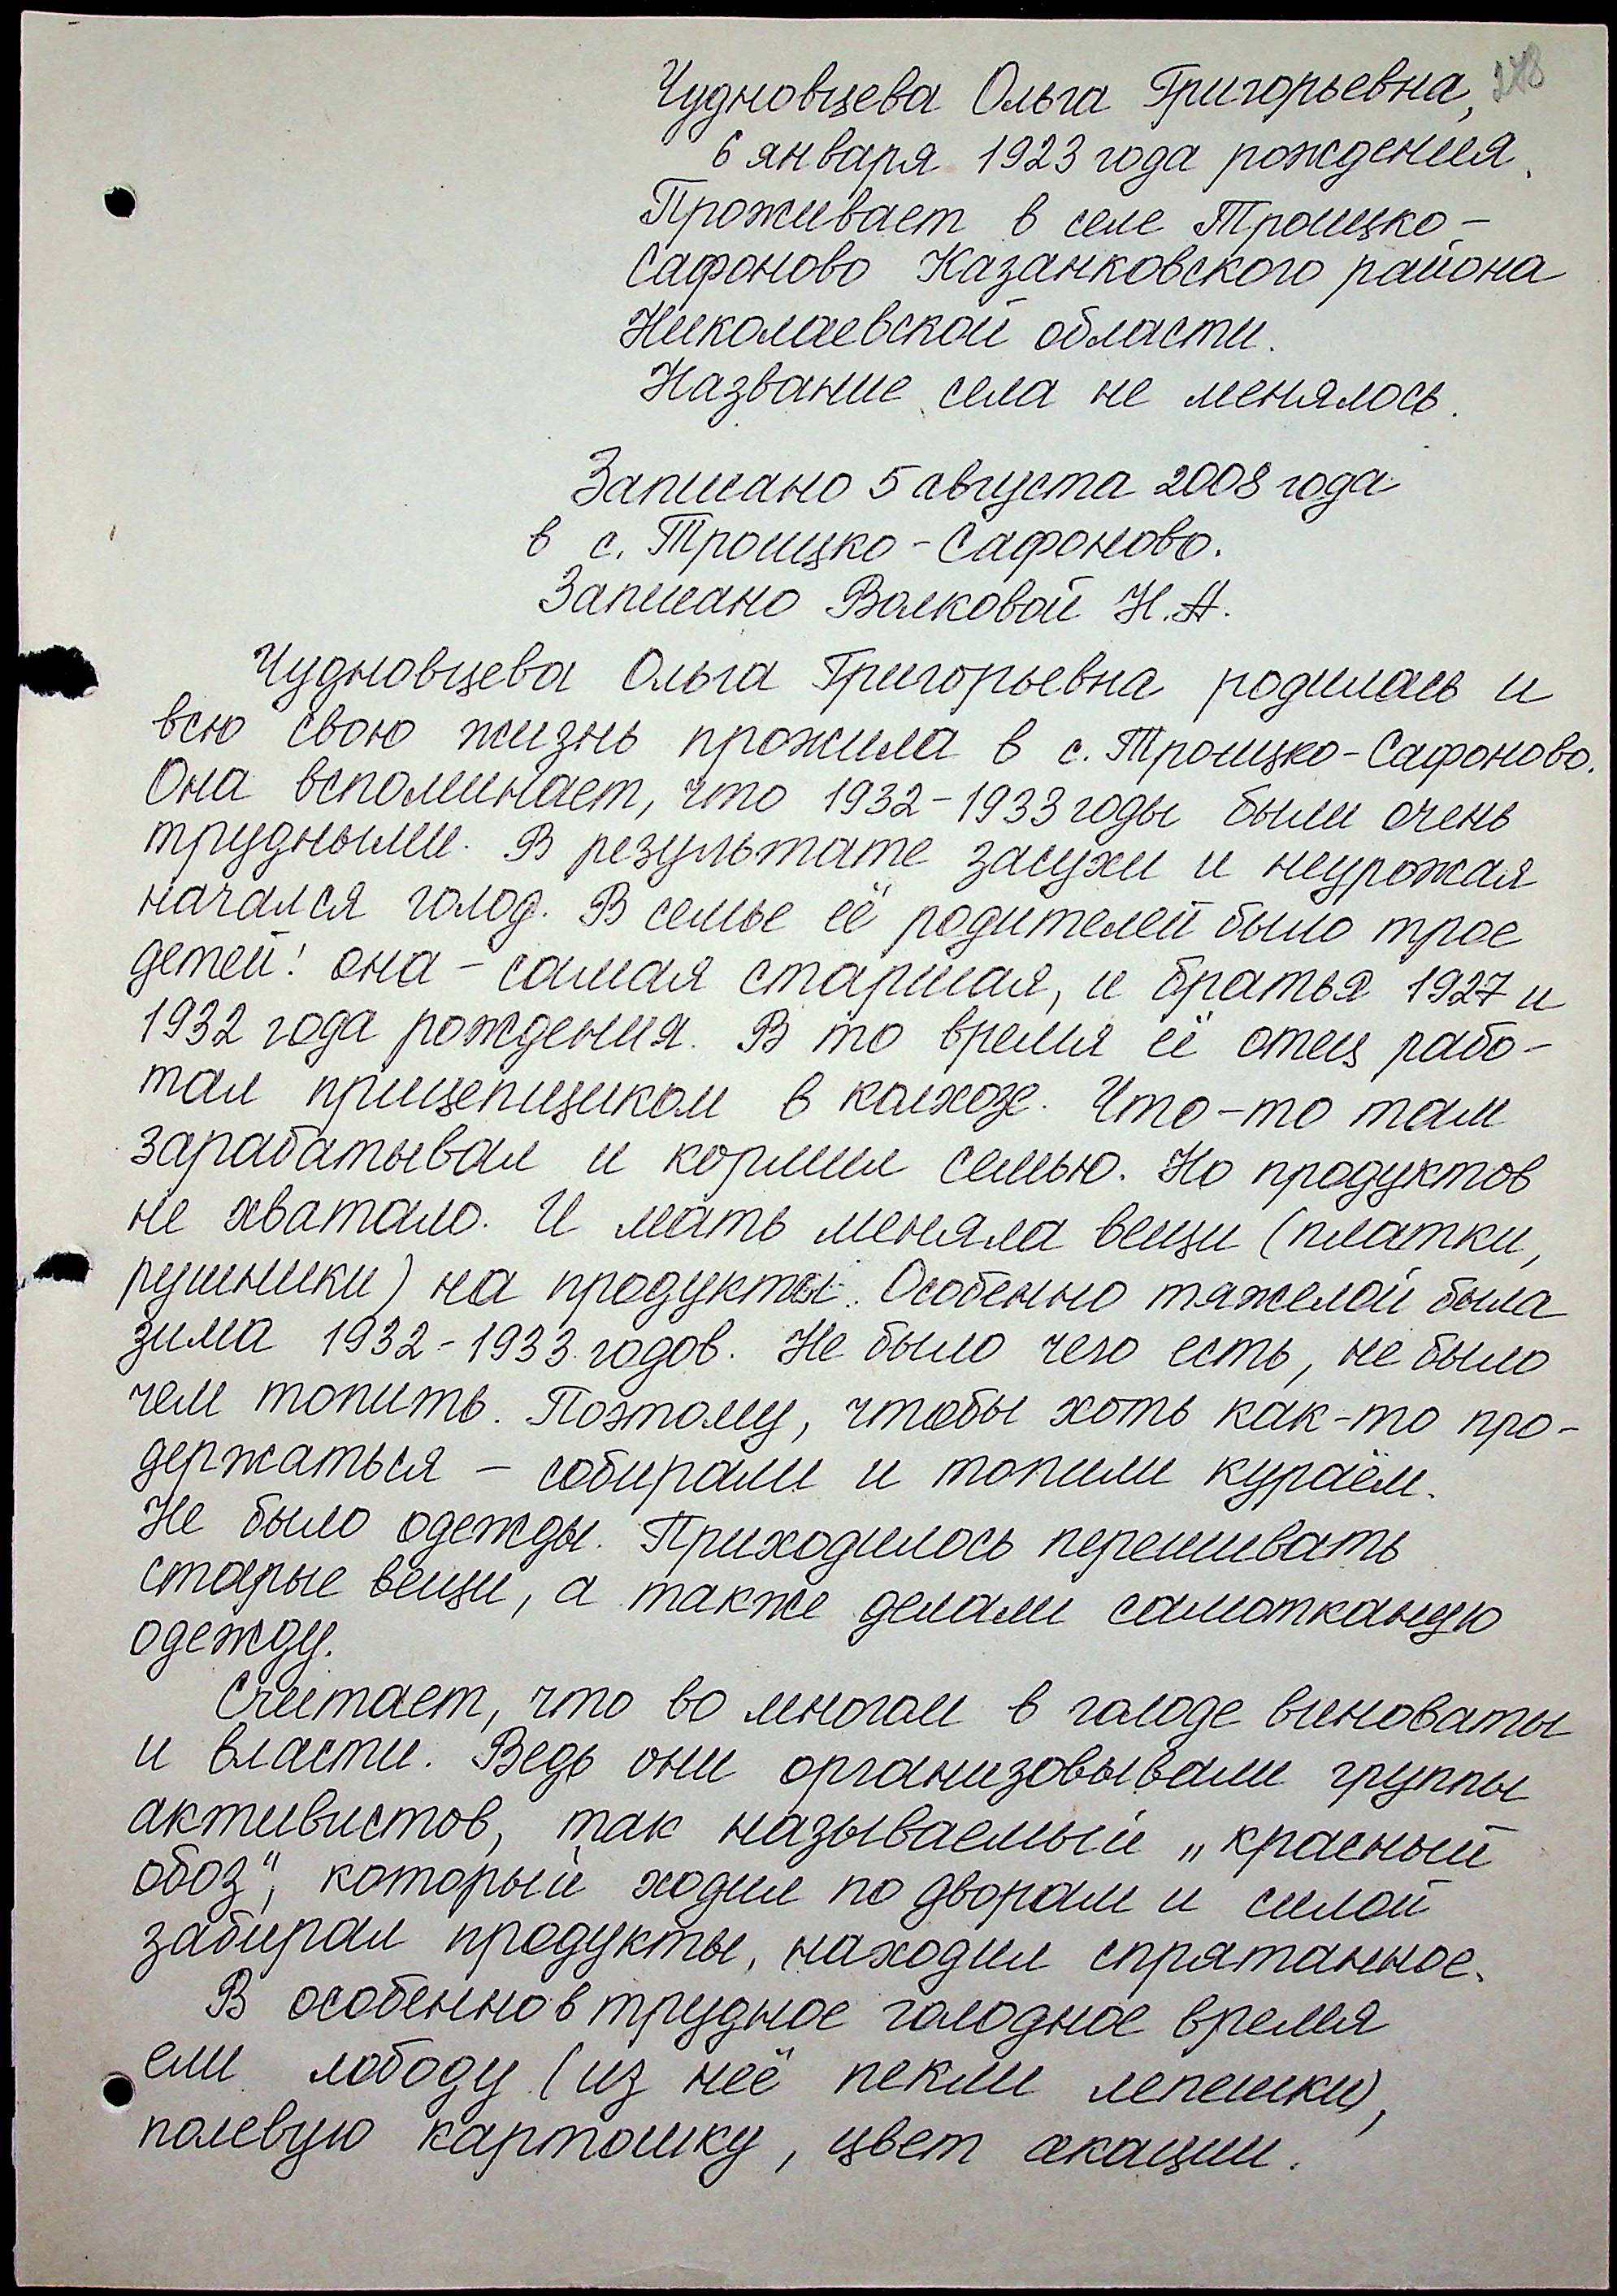 Чудновцева Ольга Григорьевна,
6 января 1923 года рождения.
Проживает в селе Троицко-
Сафоново Казанковского района
Николаевской области.
Название села не менялось.
Записано 5 августа 2008 года
в с. Троицко-Сафоново.
Записано Волковой Н.А.
Чудновцева Ольга Григорьевна родилась и
всю свою жизнь прожила в с. Троицко-Сафоново.
Она вспоминает, что 1932-1933 годы были очень
трудными. В результате засухи и неурожая
начался голод. В семье её родителей было трое
детей: она - самая старшая, и братья 1927 и
1932 года рождения. В то время её отец рабо-
тал прицепщиком в колхозе. Что-то там
зарабатывал и кормил семью. Но продуктов
не хватало. И мать меняла вещи (платки,
рушники) на продукты. Особенно тяжелой была
зима 1932-1933 годов. Не было чего есть, не было
чем топить. Поэтому, чтобы хоть как-то про-
держаться - собирали и топили кураём.
Не было одежды. Приходилось перешивать
старые вещи, а также делали самотканую
одежду.
Считает, что во многом в голоде виноваты
и власти. Ведь они организовывали группы
активистов, так называемый „красный
обоз", который ходил по дворам и силой
забирал продукты, находил спрятанное.
В особенно в трудное голодное время
ели лободу (из неё пекли лепешки),
полевую картошку, цвет акации.